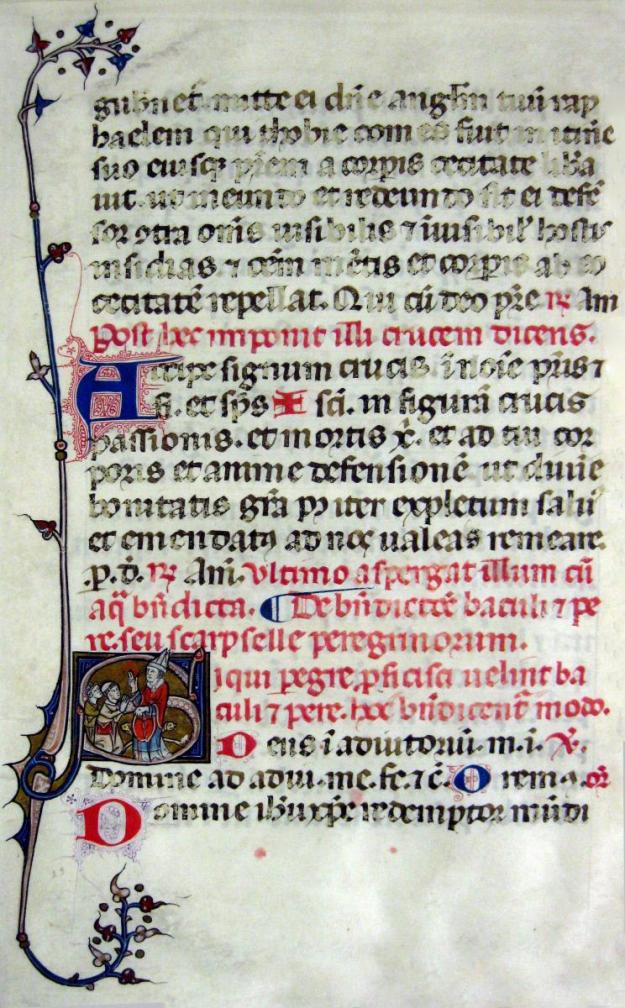 gubn̄et. mitte ei dn̄e angl̄m tuū rap
haelem qui thobie comes fuit in itine
suo eiusq̢ pr̄em a corpīs cecitate lib̄a
uit. ut in eundo et redeundo sit ei defē
sor 9tra om̄is uisibilis ⁊ īuisibil' hostis
insidias. ⁊ om̄em mētis et corpīs ab eo
cecitatē repellat. Qui cū deo pr̄e ℟ Am
Post hec imponit illi crucem dicens.
Accipe signum crucis. ī noīe pr̄is ⁊
fi. et sp̄s ✠ sc̄i. in figurā crucis
passionis. et mortis x̄. et ad tui cor
poris et anime defensionē. ut diuīe
bonitatis gr̄a p9 iter expletum salu'
et emendat9 ad nos ualeas remeare.
.p. d. ℟ Am̄. Ultimo aspergat illum cū
aq̄ bn̄dicta. ¶ De bn̄dictōē baculi ⁊ pe
re. seu scarpselle peregrinorum.
Si qui pegre pficisci uelint ba
culi ⁊ pere. hoc bn̄dicent̄ modo.
Deus ī adiutoriū. m. ī. ℣.
Domine ad adiu. me. fe. ⁊c̄. Orem9. or̄
Domine ih̄u xp̄e redemptor mūdi